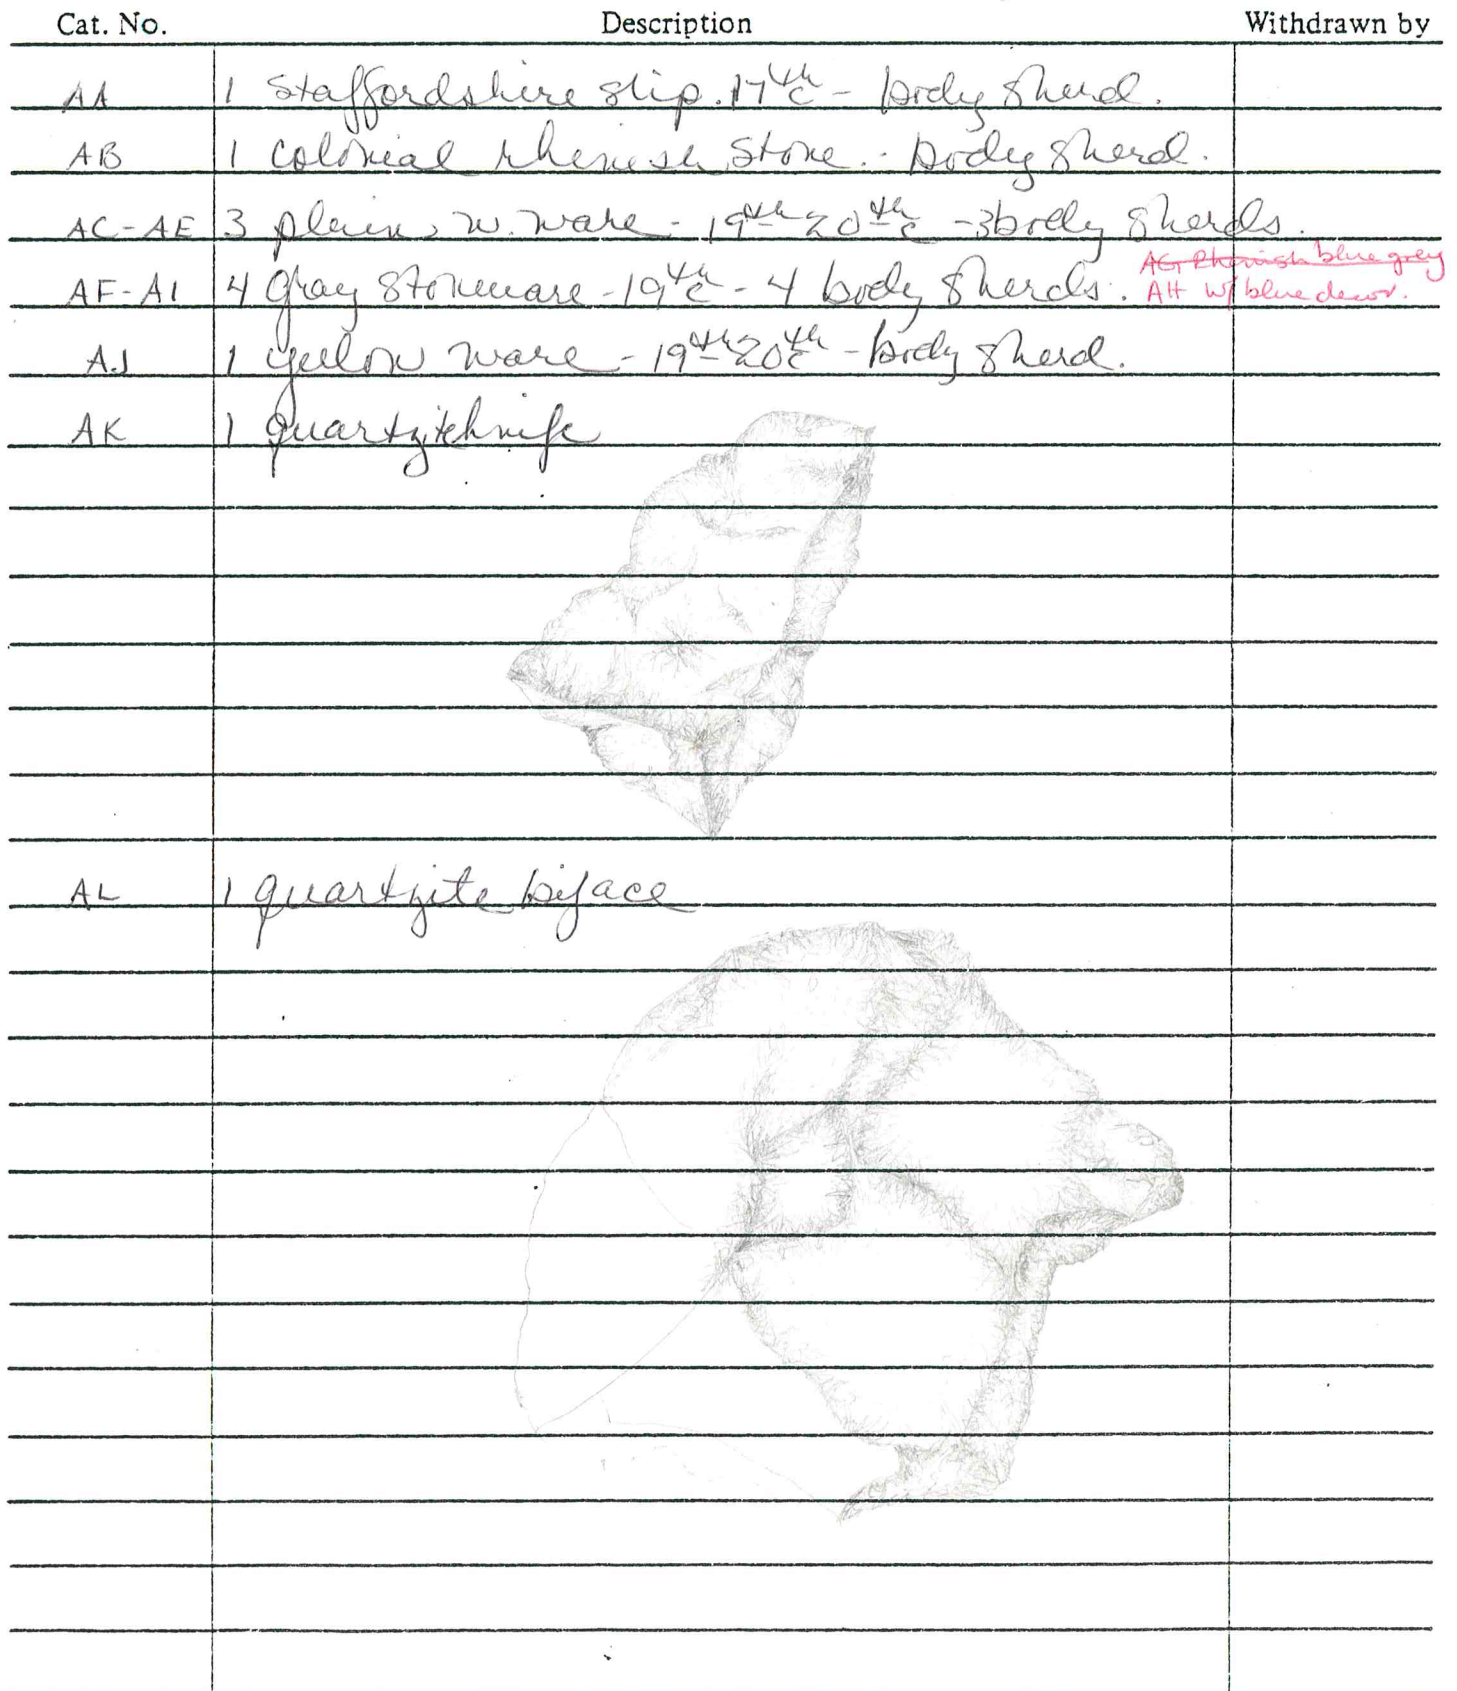 Cat. No. Description Withdrawn by
AA 1 Staffordshire slip. 17th c - body sherd.
AB 1 colonial rhenish stone - body sherd.
AC-AE 3 plain w. ware - 19th 20th c - 3 body sherds.
AG, Rhenish blue grey
AF-AI 4 gray stoneware - 19th c - 4 body sherds. AH w/ blue decor.
AJ 1 yellow ware - 19th 20th c - body sherd.
AK 1 quartzite knife
AL 1 quartzite biface